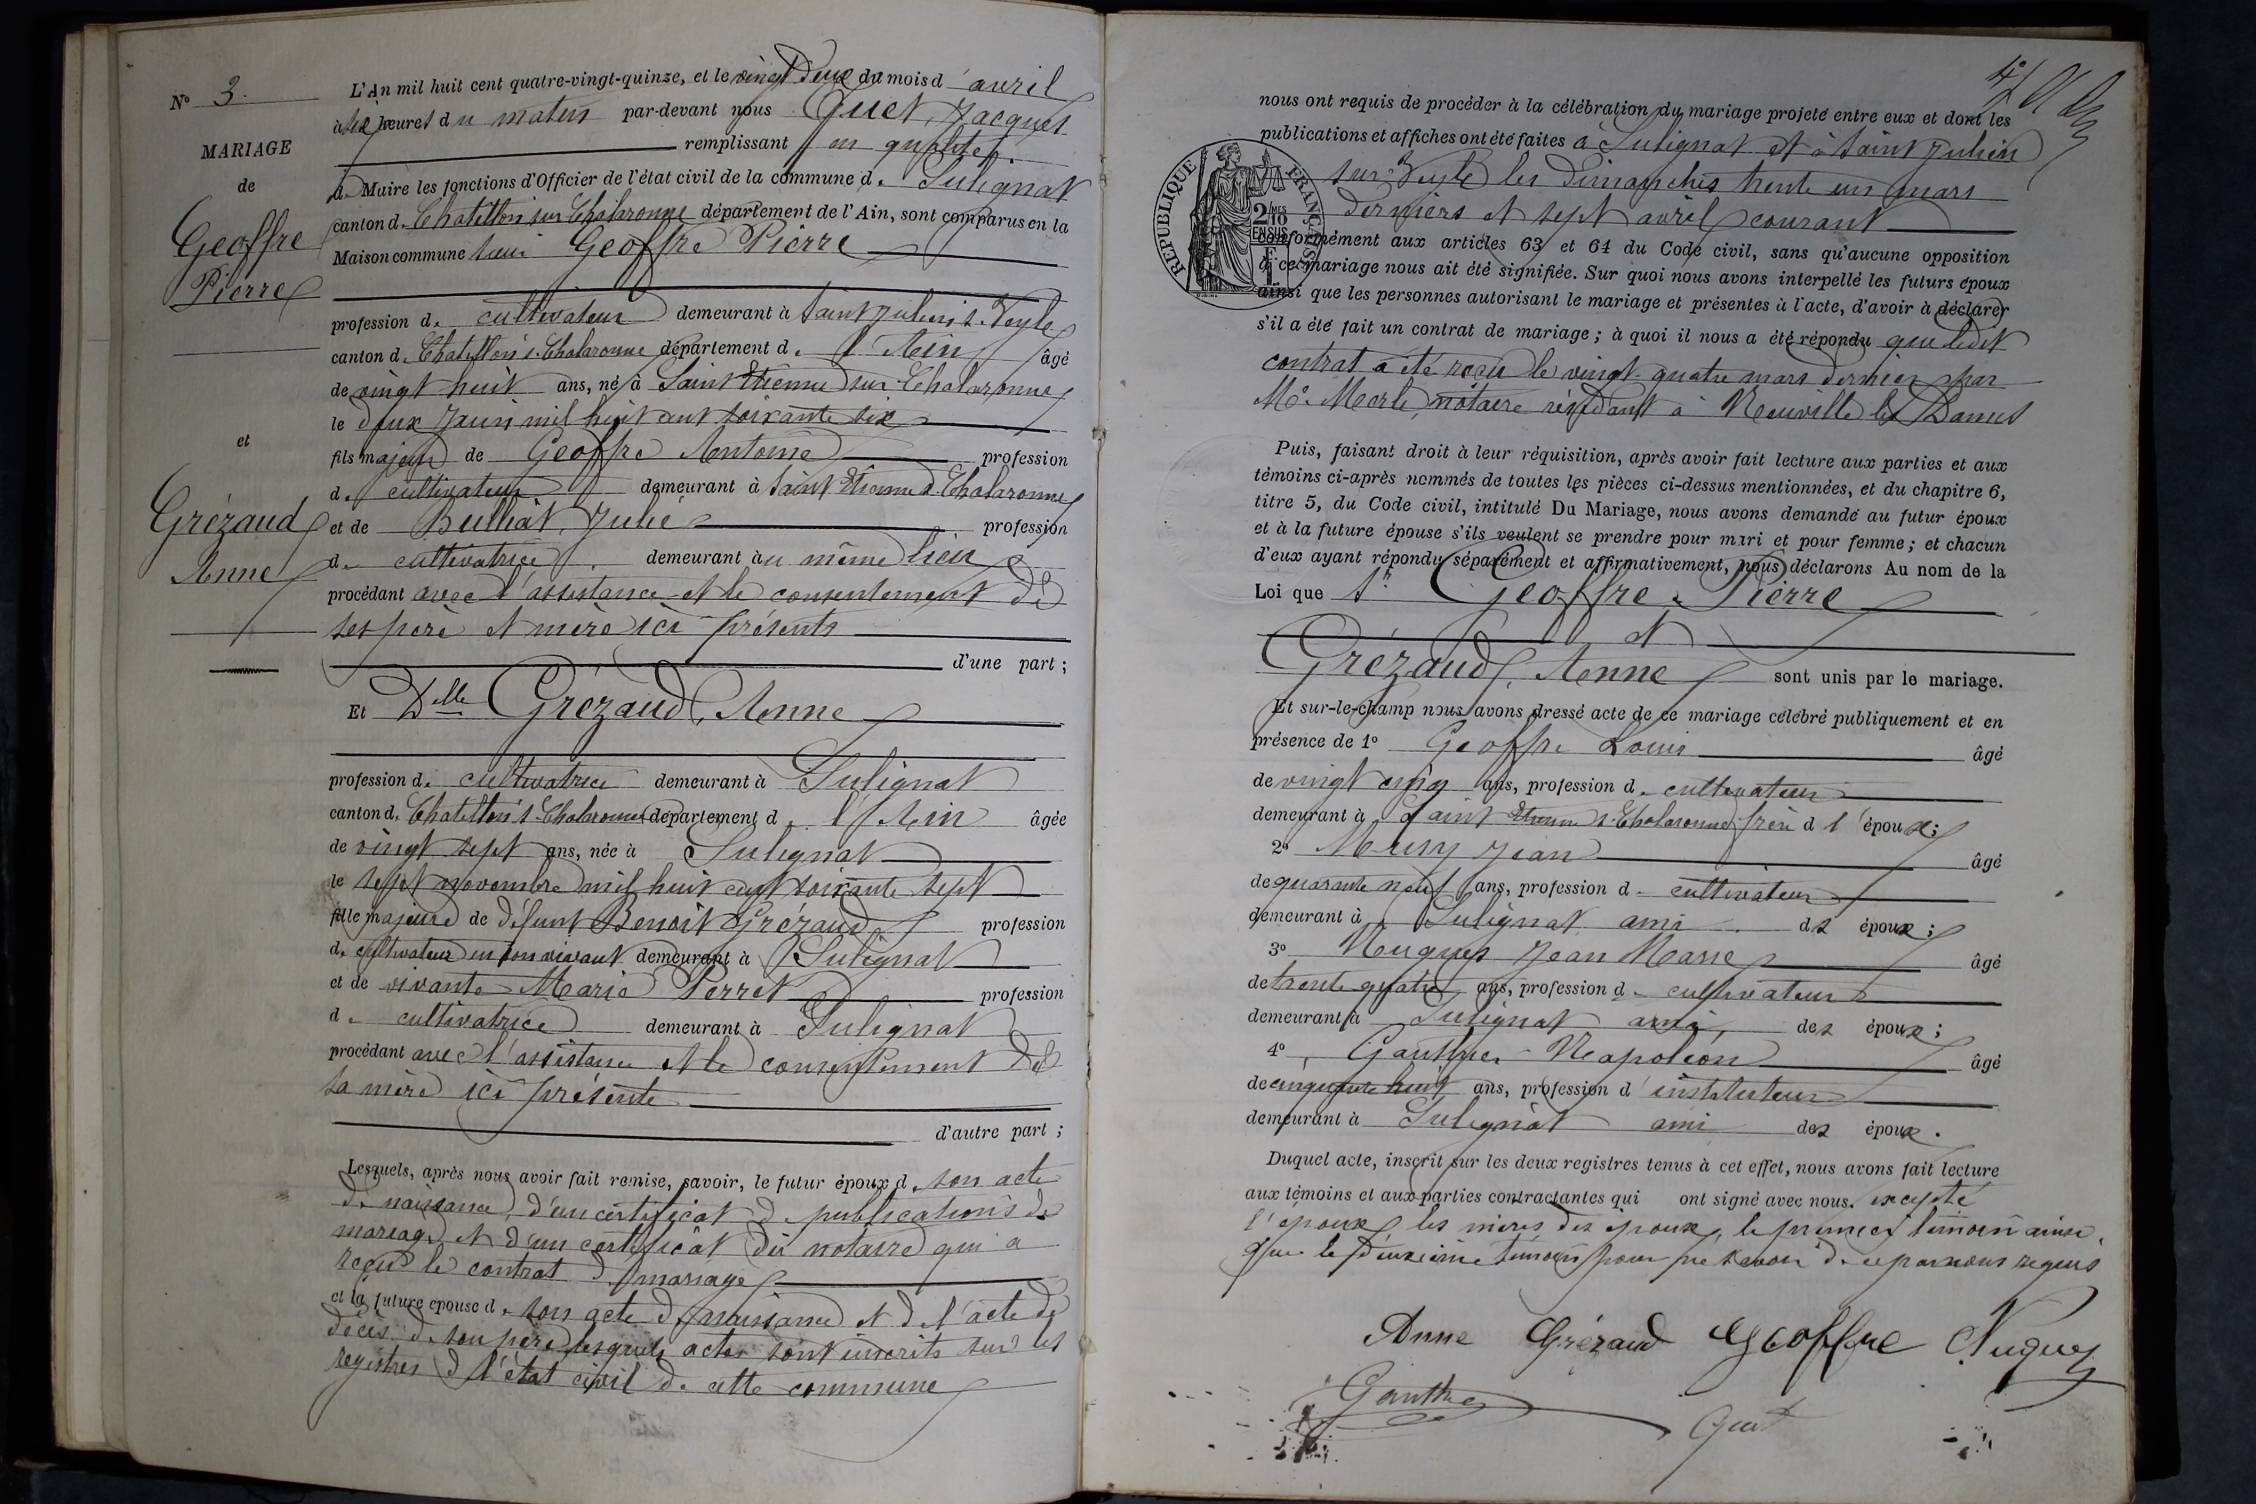 N° 3.
MARIAGE
de
Geoffre
Pierre
et
Grézaud
Anne
L'An mil huit cent quatre-vingt-quinze, et le vingt deux du mois d'avril
à six heures du matin par-devant nous Guet, Jacques
remplissant en qualité
de Maire les fonctions d'Officier de l'état civil de la commune de Sulignat
canton de Chatillon sur Chalaronne département de l'Ain, sont comparus en la
Maison commune sieur Geoffre Pierre
profession de cultivateur demeurant à Saint Julien s. Veyle
canton de Chatillon s. Chalaronne département de l'Ain âgé
de vingt huit ans, né à Saint Etienne sur Chalaronne
le deux juin mil huit cent soixante six
fils majeur de Geoffre Antoine profession
de cultivateur demeurant à Saint Etienne s. Chalaronne
et de Bulliat, Julie profession
de cultivatrice demeurant au même lieu
procédant avec l'assistance et le consentement de
ses père et mère ici présents
d'une part ;
Et Delle Grézaud, Anne
profession de cultivatrice demeurant à Sulignat
canton de Chatillon s. Chalaronne département de l'Ain âgée
de vingt sept ans, née à Sulignat
le sept novembre mil huit cent soixante sept
fille majeure de défunt Benoît Grézaud profession
de cultivateur en son vivant demeurant à Sulignat
et de vivante Marie Perret profession
de cultivatrice demeurant à Sulignat
procédant avec l'assistance et le consentement de
sa mère ici présente
d'autre part ;
Lesquels, après nous avoir fait remise, savoir, le futur époux de son acte
de naissance, d'un certificat de publications de
mariage et d'un certificat du notaire qui a
reçu le contrat de mariage
et la future épouse de son acte de naissance et de l'acte de
décès de son père lesquels actes sont inscrits sur les
registres de l'état civil de cette commune
nous ont requis de procéder à la célébration du mariage projeté entre eux et dont les
publications et affiches ont été faites à Sulignat et à Saint Julien
sur Veyle les dimanches trente un mars
derniers et sept avril courant
conformément aux articles 63 et 64 du Code civil, sans qu'aucune opposition
à ce mariage nous ait été signifiée. Sur quoi nous avons interpellé les futurs époux
ainsi que les personnes autorisant le mariage et présentes à l'acte, d'avoir à déclarer
s'il a été fait un contrat de mariage ; à quoi il nous a été répondu que ledit
contrat a été reçu le vingt-quatre mars dernier par
Me Merle, notaire résidant à Neuville les Dames
RÉPUBLIQUE FRANÇAISE
2/10 MES
EN SUS
Puis, faisant droit à leur réquisition, après avoir fait lecture aux parties et aux
témoins ci-après nommés de toutes les pièces ci-dessus mentionnées, et du chapitre 6,
titre 5, du Code civil, intitulé Du Mariage, nous avons demandé au futur époux
et à la future épouse s'ils veulent se prendre pour mari et pour femme ; et chacun
d'eux ayant répondu séparément et affirmativement, nous déclarons Au nom de la
Loi que Sr Geoffre Pierre
et
Grézaud, Anne sont unis par le mariage.
Et sur-le-champ nous avons dressé acte de ce mariage célébré publiquement et en
présence de 1° Geoffre Louis âgé
de vingt cinq ans, profession de cultivateur
demeurant à Saint Etienne s. Chalaronne frère de l'époux ;
2° Meray Jean âgé
de quarante neuf ans, profession de cultivateur
demeurant à Sulignat ami des époux ;
3° Nugues Jean Marie âgé
de trente quatre ans, profession de cultivateur
demeurant à Sulignat ami, des époux ;
4° Gauthier Napoléon âgé
de cinquante huit ans, profession d'instituteur
demeurant à Sulignat ami des époux.
Duquel acte, inscrit sur les deux registres tenus à cet effet, nous avons fait lecture
aux témoins et aux parties contractantes qui ont signé avec nous. excepté
l'époux, les mères des époux, le premier témoin ainsi
que le deuxième témoin pour ne savoir de ce par nous requis
Anne Grézaud Geoffre Nugues
Gauthier Guet